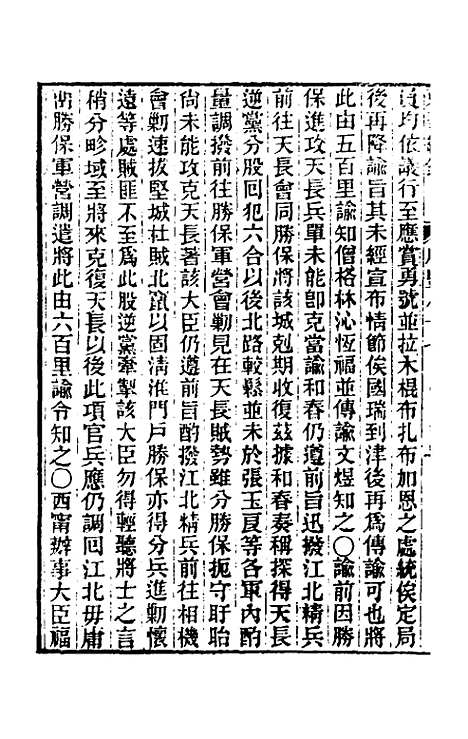 員均依議行至應賞勇號並拉木棍布扎布加恩之處統俟定局
後再降諭旨其未經宣布情節俟國瑞到津後再為傳諭可也將
此由五百里諭知僧格林沁恆福並傳諭文煜知之○諭前因勝
保進攻天長兵單未能卽克當諭和春仍遵前旨迅撥江北精兵
前往天長會同勝保將該城剋期收復茲據和春奏稱探得天長
逆黨分股回犯六合以後北路較鬆並未於張玉良等各軍內酌
量調撥前往勝保軍營會勦見在天長賊勢雖分勝保扼守盱眙
尙未能攻克天長著該大臣仍遵前旨酌撥江北精兵前往相機
會勦速拔堅城杜賊北竄以固淸淮門戶勝保亦得分兵進勦懷
遠等處賊匪不至為此股逆黨牽掣該大臣勿得輕聽將士之言
稍分畛域至將來克復天長以後此項官兵應仍調回江北毋庸
留勝保軍營調遣將此由六百里諭令知之○西甯辦事大臣福